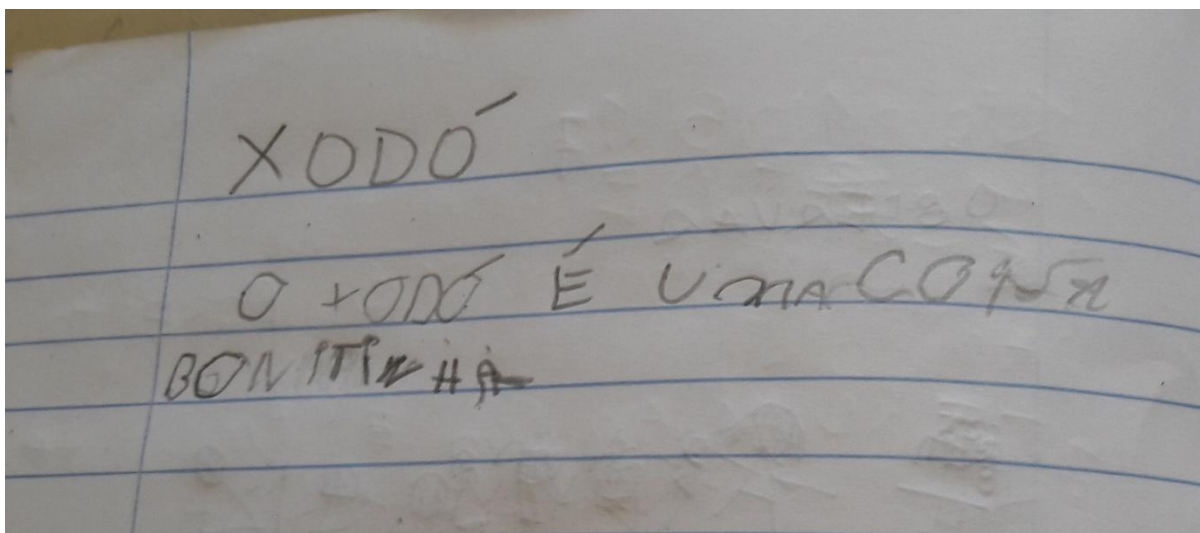 XODÓ
O XODÓ É UMA COISA
BONITINHA